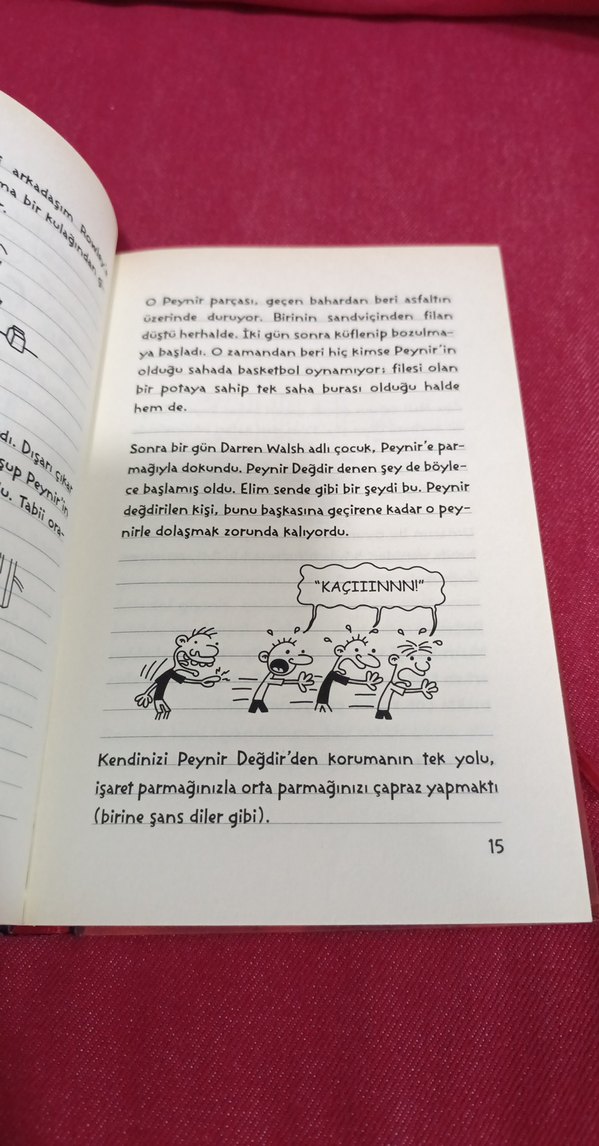 arkadaşım Rowley'i
ma bir kulağından gi
r.
dı. Dışarı çıkar
şup Peynir'in
u. Tabii ora-
O Peynir parçası, geçen bahardan beri asfaltın
üzerinde duruyor. Birinin sandviçinden filan
düştü herhalde. İki gün sonra küflenip bozulma-
ya başladı. O zamandan beri hiç kimse Peynir'in
olduğu sahada basketbol oynamıyor; filesi olan
bir potaya sahip tek saha burası olduğu halde
hem de.
Sonra bir gün Darren Walsh adlı çocuk, Peynir'e par-
mağıyla dokundu. Peynir Değdir denen şey de böyle-
ce başlamış oldu. Elim sende gibi bir şeydi bu. Peynir
değdirilen kişi, bunu başkasına geçirene kadar o pey-
nirle dolaşmak zorunda kalıyordu.
"KAÇIIINNN!"
Kendinizi Peynir Değdir'den korumanın tek yolu,
işaret parmağınızla orta parmağınızı çapraz yapmaktı
(birine şans diler gibi).
15